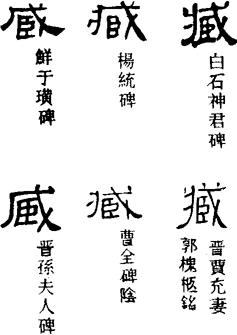 臧
白石神君碑
臧
楊統碑
臧
鮮于璜碑
臧
晋賈充妻
郭槐柩銘
臧
曹全碑陰
臧
晋孫夫人碑